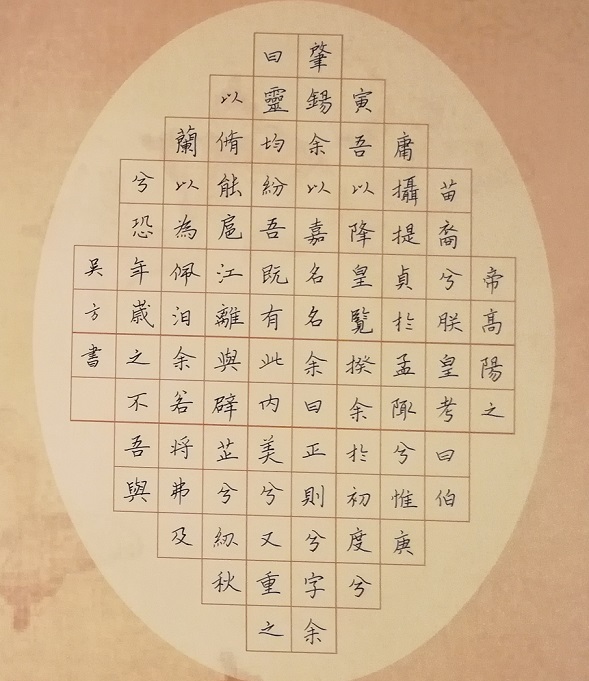 帝高陽之
苗裔兮朕皇考曰伯
庸攝提貞於孟陬兮惟庚
寅吾以降皇覽揆余於初度兮
肇錫余以嘉名名余曰正則兮字余
曰靈均紛吾既有此内美兮又重之
以脩能扈江離與辟芷兮紉秋
蘭以為佩汩余若將弗及
兮恐年歲之不吾與
吳方書